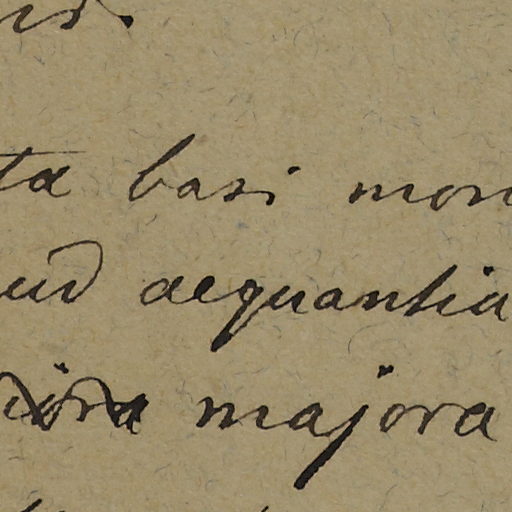 ta basi mon
ud aequantia
majora